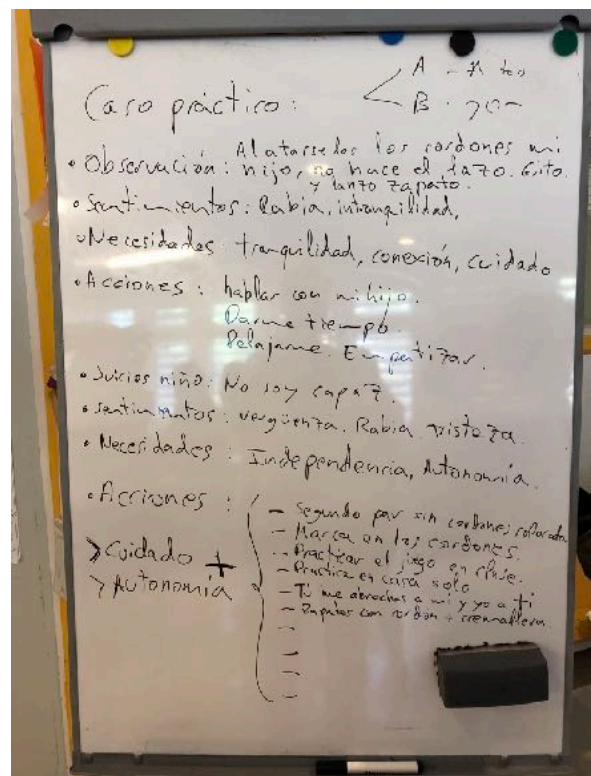 Caso práctico: A
B · yo
Al atarse los cordones mi
• Observación: hijo, no hace el lazo. Grito.
y lanzo zapato.
• Sentimientos: Rabia, intranquilidad,
• Necesidades tranquilidad, conexión, cuidado
• Acciones: hablar con mi hijo.
Darme tiempo.
Relajarme. Empatizar.
• Juicios niño: No soy capaz.
• sentimientos: vergüenza. Rabia. tristeza.
• Necesidades: Independencia, Autonomía.
• Acciones:
- Segundo par sin cordones
- Marca en los cordones.
- Practicar el juego en clase.
- Practica en casa solo
- Tú me abrochas a mi y yo a ti
- Zapatos con cordón + cremallera
> Cuidado +
> Autonomía